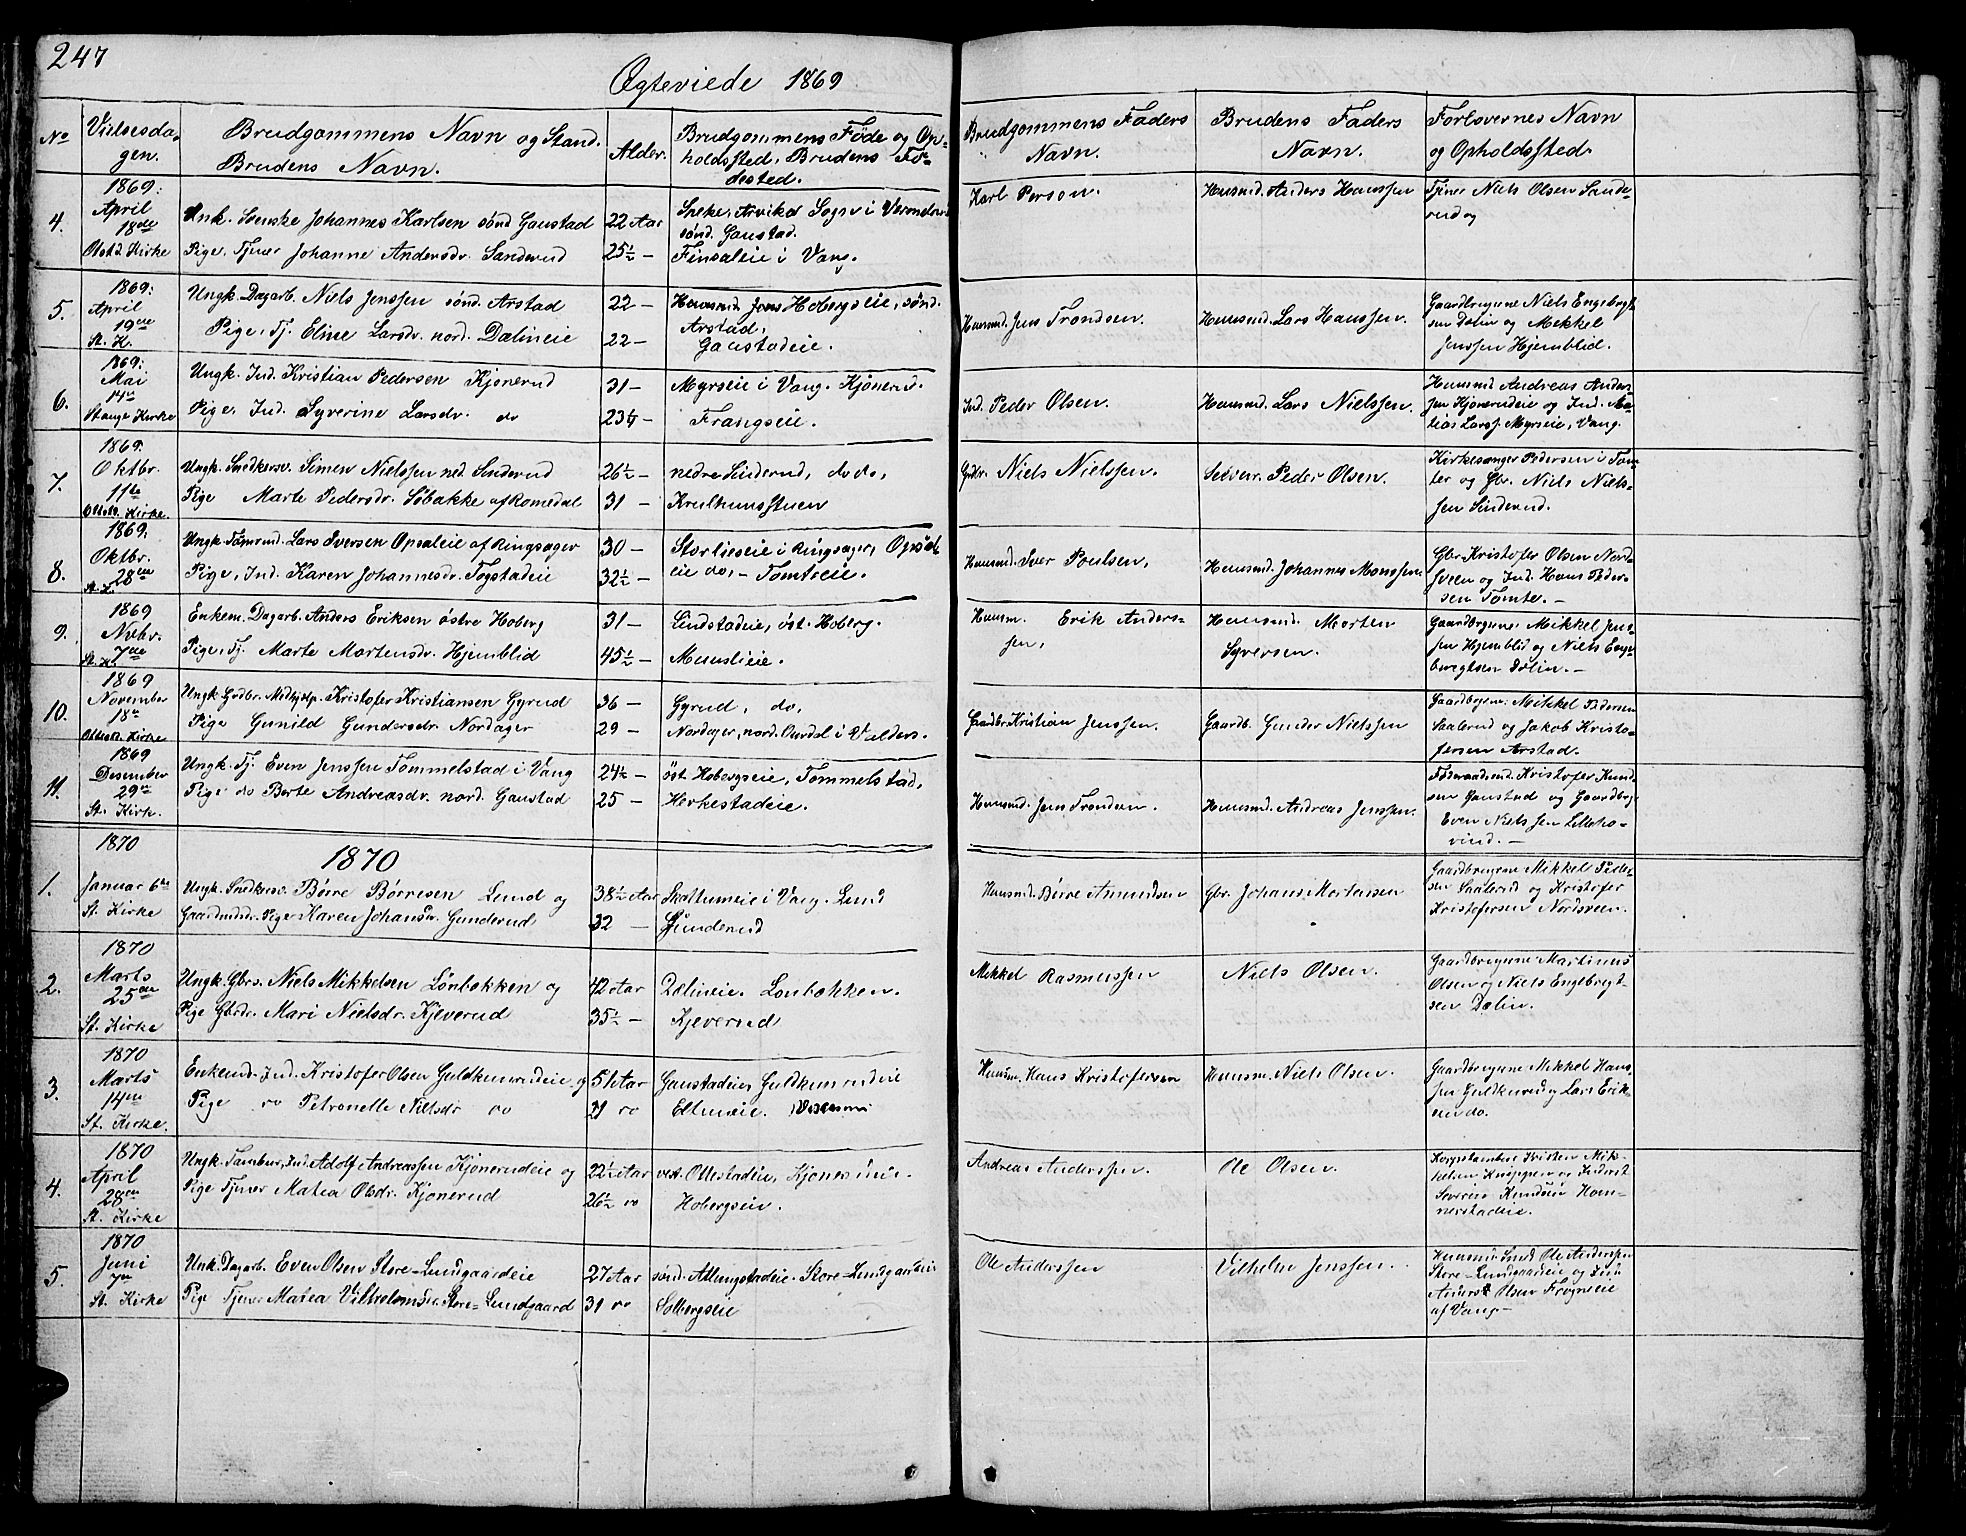 247
Ægteviede 1869
No
Vielsesda-
gen.
Brudgommens Navn og Stand.
Brudens Navn.
Alder.
Brudgommens Føde og Op-
holdssted, Brudens Fø-
dested.
Brudgommens Faders
Navn.
Brudens Faders
Navn.
Forlovernes Navn
og Opholdssted.
4.
1869:
April
18de
Ottst. Kirke
Unk. Svenske Johannes Karlsen sønd Gaustad
Pige. Tjener Johanne Andersdr. Sanderud
22 Aar
25½ —
Arvika Sogn i
sønd. Gaustad.
Finsaleie i Vang.
Karl Person.
Huusmd. Anders Hanssen
Tjener Niels Olsen Sande-
rud og
5.
1869:
April
19de
St. K.
Ungk. Dagarb. Niels Jenssen sønd. Arstad
Pige, Tj. Eline Larsdr. nord. Dælineie
22 —
22 —
Huusmd. Jens Hobergseie, sønd.
Arstad,
Gaustadeie.
Huusmd. Jens Trondsen.
Huusmd. Lars Hanssen.
Gaardbrugerne Niels Engebrigt-
sen Dælin og Mikkel
Jenssen Hjemblid.
6.
1869:
Mai
14de
Stange Kirke
Ungk. Ind. Kristian Pedersen Kjonerud
Pige, Ind. Syverine Larsdr. do
31 —
23½ —
Myrseie i Vang. Kjonerud.
Frangseie.
Ind. Peder Olsen.
Huusmd. Lars Nielssen.
Huusmd Andreas Ander-
sen Kjonerudeie og Ind. Ma-
tias Larss. Myrseie, Vang.
7.
1869.
Oktbr.
11te
Ottest. Kirke.
Ungk. Snedkersv. Simen Nielssen ned. Sinderud
Pige Marte Pedersdr. Søbakke af Romedal
26½ —
31 —
nedre Sinderud, do do,
Krulhuusstuen
Gdbr. Niels Nielssen.
Selveier. Peder Olsen.
Kirkesanger Pedersen i Tom-
ter og Gbr. Niels Niels-
sen Sinderud.
8.
1869.
Oktbr.
28de
St. K.
Ungk. Tømrmd. Lars Iversen Opsaleie af Ringsager
Pige, Ind. Karen Johannesdr. Fogstadeie
30 —
32½ —
Storlieseie i Ringsager, Opsal-
eie do, — Tomteie.
Huusmd. Iver Poulsen,
Huusmd. Johannes Monssen
Gbr. Kristofer Olsen Nord-
sveen og Ind. Hans Peder-
sen Tomte. —
9.
1869
Novbr.
7de
St. K.
Enkem. Dagarb. Anders Eriksen østre Hoberg
Pige, Tj. Marte Mortensdr. Hjemblid
31 —
45½ —
Lindstadeie, øst. Hoberg.
Muuslieie.
Huusm. Erik Anders-
sen,
Huusmd. Morten
Syversen.
Gaardbrgrne. Mikkel Jens-
sen Hjemblid og Niels Enge-
bregtsen Dølin. —
10.
1869
November
18de
Ottest. Kirke
Ungk. Grdbr. Medhjelp. Kristofer Kristiansen Gyrud
Pige Gunild Gundersdr. Nordager
36 —
29 —
Gyrud, do,
Nordager, nord. Ourdal i Valders.
Gaardbr. Kristian Jenssen.
Gaardb. Gunder Nielssen
Gaardbrgrne: Mikkel Pedersen
Saalerud og Jakob Kristo-
fersen Arstad.
11.
1869
Desember
29de
St. Kirk.
Ungk. Tj. Even Jenssen Tommelstad i Vang
Pige do Berte Andreasdr. nord. Gaustad
24½ —
25 —
øst. Hobergseie, Tommelstad,
Herkestadeie.
Huusmd. Jens Trondsen.
Huusmd. Andreas Jenssen.
Føderaadsmd. Kristofer Knud-
sen Gaustad og Gaardbrgr
Even Nielssen Lilleho-
vind. —
1870
1870
1.
Januar 6te
St. Kirke
Ungk. Snedkersv. Børre Børresen Lund og
Gaardmdsdr. Pige Karen Johansdr. Gunderud
38½ Aar
32 —
Skattumeie i Vang. Lund
Gunderud
Huusmd. Børre Amundsen
Gbr. Johans Mortensen
Gaardbrgerne Mikkel Peder-
sen Saalerud og Kristofer
Kristofersen Nordsveen.
2.
1870
Marts
25de
St. Kirke
Ungk. Gbrs. Niels Mikkelsen Lønbækken og
Pige Gbrdr. Mari Nielsdr. Kjeverud
42 Aar
35½ —
Dælineie. Lønbækken.
Kjeverud
Mikkel Rasmussen
Niels Olsen.
Gaardbrugerne Martinus
Olsen og Niels Engebregt-
sen Dælin.
3.
1870
Marts
14de
St. Kirke.
Enkemd. Ind. Kristofer Olsen Guldkunrudeie og
Pige do Petronelle Nielsdr do
51 Aar
21 do
Gaustadeie, Guldkunrudeie
Eltuneie.
Huusm. Hans Kristofersen
Huusm. Niels Olsen.
Gaardbrugerne Mikkel Hans-
sen Guldkunrud og Lars Erik-
sen do.
4.
1870
April
28de
St. Kirke
Ungk. Tambur, Ind. Adolf Andreassen Kjonerudeie og
Pige Tjener Matea Olsdr. Kjonerud
22½ Aar
26½ do
vest. Ottestadeie, Kjonerudeie.
Hobergseie.
Andreas Anderssen.
Ole Olsen.
Korpstambur Kristen Mik-
kelsen og Inderst
Severin Knudsen Hom-
nerstadeie.
5.
1870
Juni
7de
St. Kirke
Unk. Dagarb. Even Olsen Store-Lundgaardeie
Pige Tjener Matea Vilhelmsdr. Store-Lundgaard
27 Aar
31 do
sønd. Allungstadeie. Store-Lundgaardeie
Solbergseie
Ole Anderssen
Vilhelm Jenssen.
Huusmd. Smed Ole Anderssen
Store-Lundgaardeie og Ind.
Anders Olsen Frogneie
af Vang —